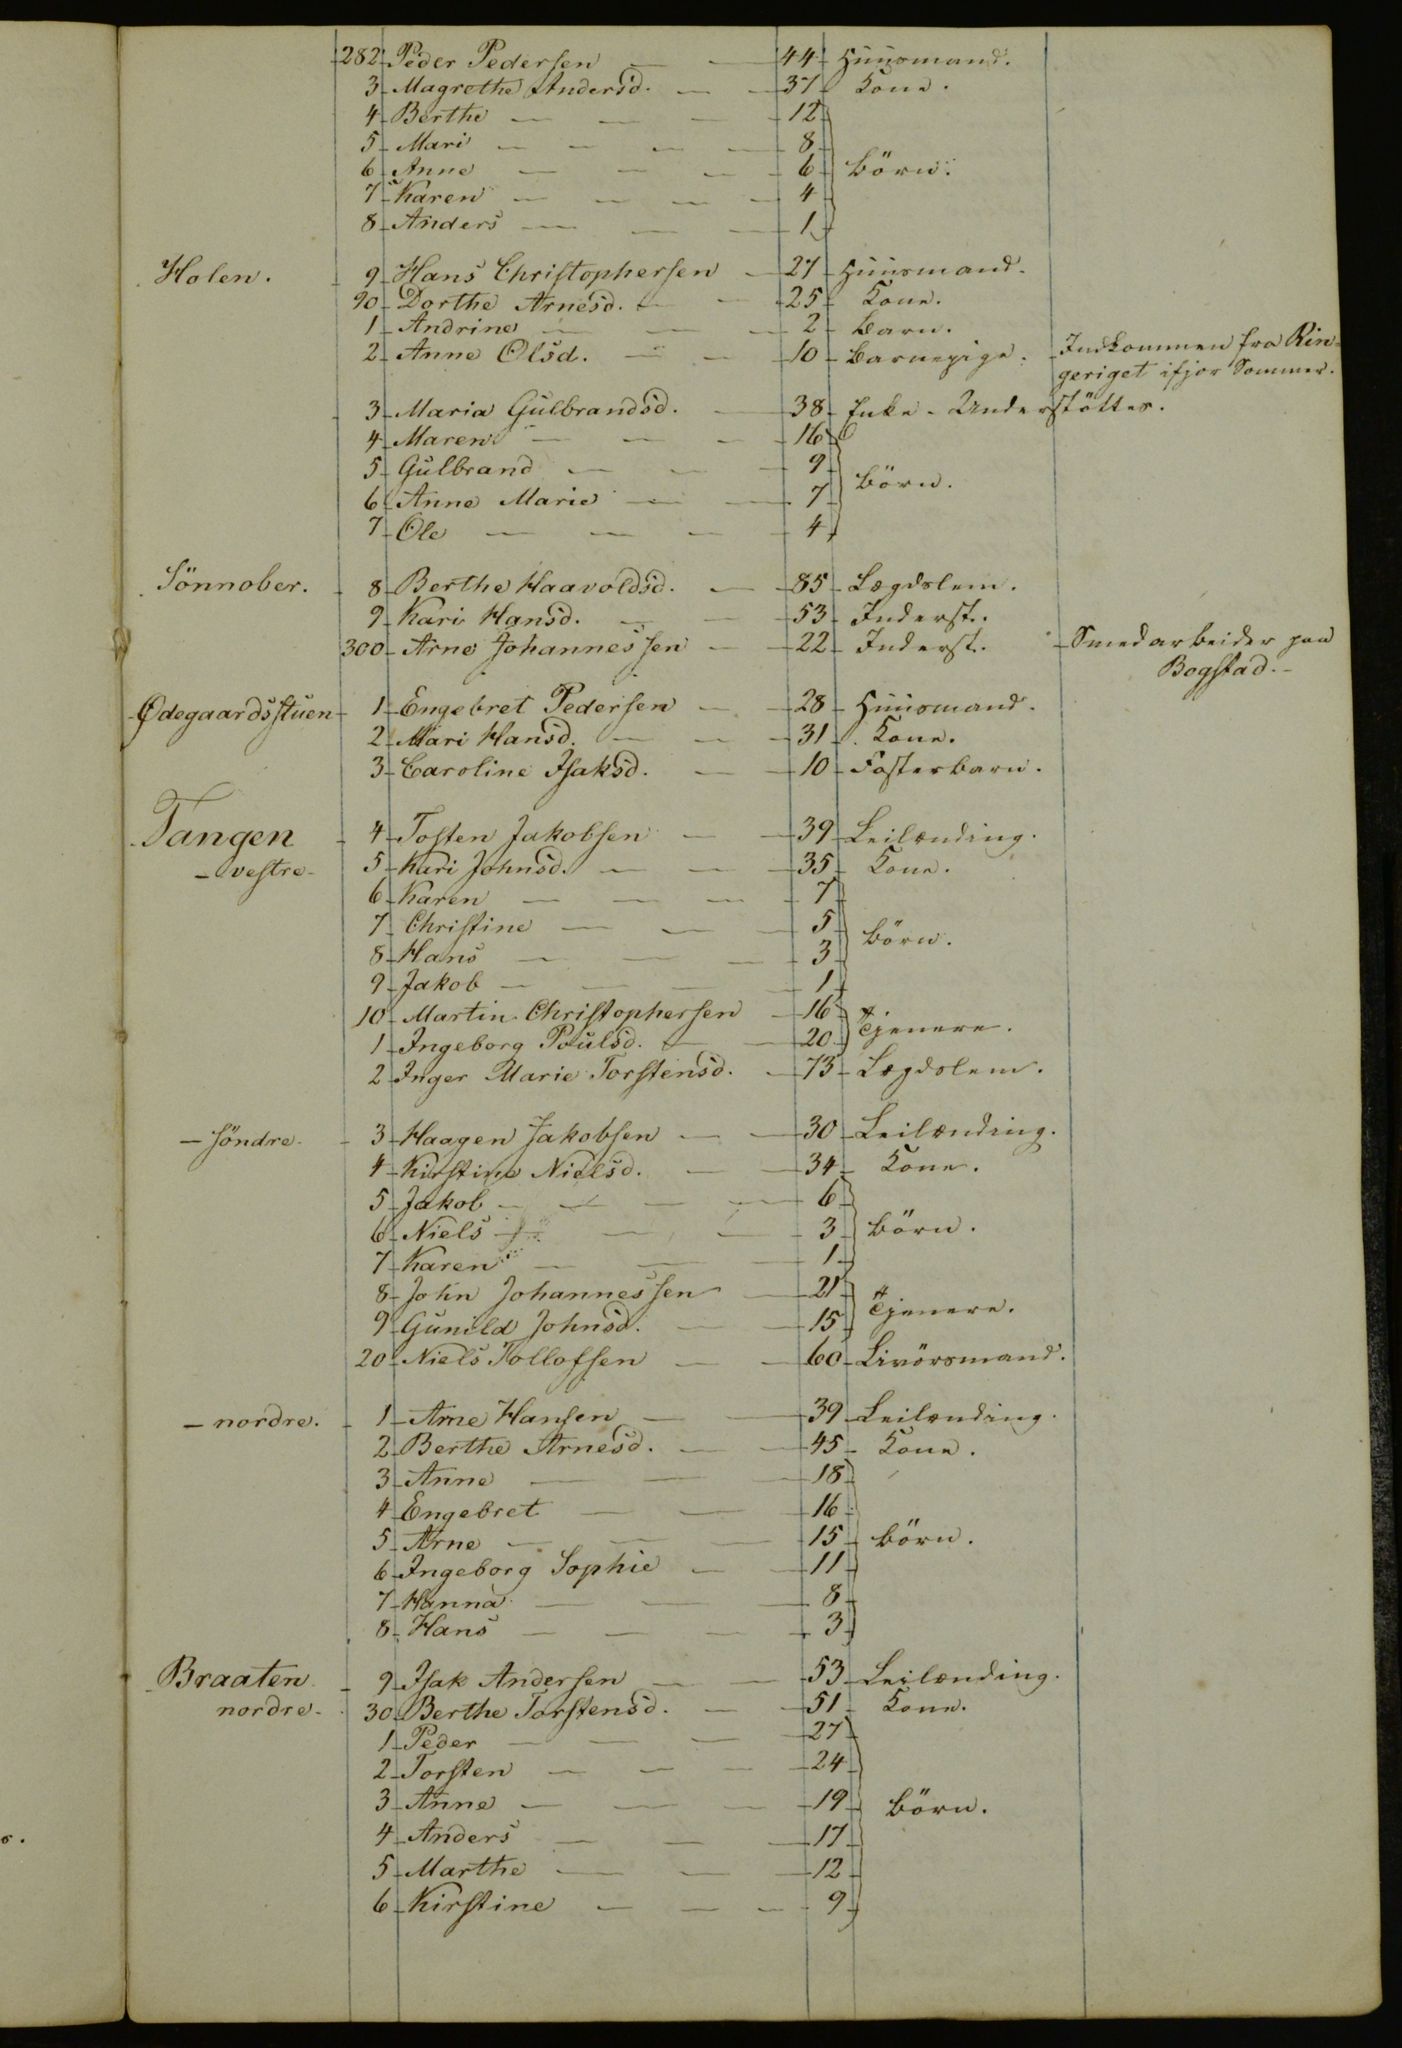 282 Peder Pedersen — — 44 Huusmand.
3 Magrethe Andersd. — — 37 Kone.
4 Berthe — — — 12
5 Mari — — — — 8
6 Anne — — — 6 Börn.
7 Karen — — — — 4
8 Anders — — — 1
Holen. 9 Hans Christophersen — 27 Huusmand.
90 Dorthe Arnesd. — — 25 Kone.
1 Andrine — — — 2 Barn.
2 Anne Olsd. — — 10 Barnepige. Indkommen fra Rin-
geriget ifjor Sommer.
3 Maria Gulbrandsd. — 38 Enke - Understöttes.
4 Maren — — — 16
5 Gulbrand — — — 9
6 Anne Marie — — 7 Börn.
7 Ole — — — — 4
Sönnober. 8 Berthe Haavoldsd. — 85 Lægdslem.
9 Kari Hansd. — — 53 Inderst.
300 Arne Johannessen — 22 Inderst. Smedarbeider paa
Bogstad. -
Ødegaardsstuen 1 Engebret Pedersen — — 28 Huusmand.
2 Mari Hansd. — — — 31 Kone.
3 Caroline Isaksd. — — 10 Fosterbarn.
Tangen 4 Tosten Jakobsen — — 39 Leilænding.
- vestre - 5 Kari Johnsd. — — — 35 Kone.
6 Karen — — — 7
7 Christine — — — 5 Börn.
8 Hans — — — 3
9 Jakob — — — — 1
10 Martin Christophersen — 16 Tjenere.
1 Ingeborg Poulsd. — — 20
2 Inger Marie Torstensd. — 73 Lægdslem.
- Söndre. 3 Haagen Jakobsen — — 30 Leilænding.
4 Kirstine Nielsd. — — 34 Kone.
5 Jakob — — — — 6
6 Niels — — — 3 Börn.
7 Karen — — — 1
8 John Johannessen — 21
9 Gunild Johnsd. — — 15 Tjenere.
20 Niels Tollofsen — — 60 Livörsmand.
- nordre. 1 Arne Hansen — — 39 Leilænding.
2 Berthe Arnesd. — — 45 Kone.
3 Anne — — — 18
4 Engebret — — 16
5 Arne — — — 15 Börn.
6 Ingeborg Sophie — — 11
7 Hanna — — — 8
8 Hans — — — 3
Braaten 9 Isak Andersen — — 53 Leilænding.
nordre - 30 Berthe Torstensd. — — 51 Kone.
1 Peder — — — 27
2 Torsten — — — 24
3 Anne — — — 19 Börn.
4 Anders — — — 17
5 Marthe — — — 12
6 Kirstine — — — 9